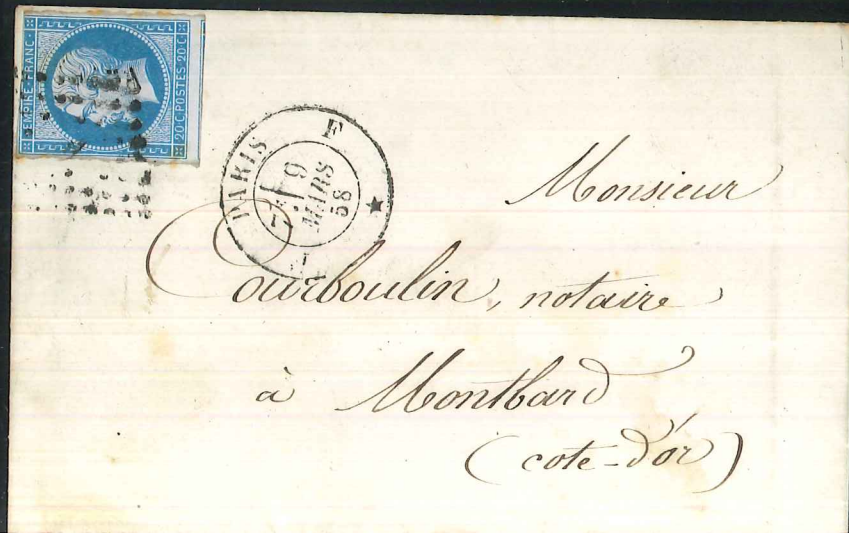 EMPIRE FRANC
20 C POSTES 20 C
PARIS F
7E
9
MARS
58
Monsieur
Courboulin, notaire
à Montbard
(cote-d'or)